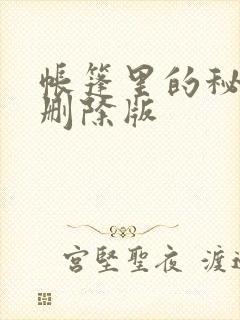 帳篷里的秘
删除版
宮堅聖夜 渡邊